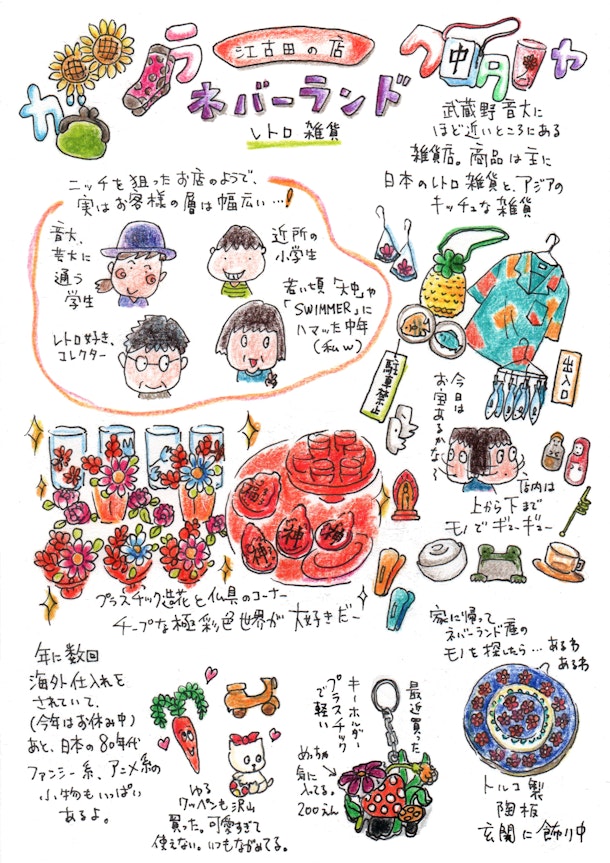 江古田の店
ネバーランド
レトロ 雑貨
カラクタヤ
中
武蔵野音大に
ほど近いところにある
雑貨店。商品は主に
日本のレトロ雑貨と、アジアの
キッチュな雑貨
ニッチを狙ったお店のようで、
実はお客様の層は幅広い…!
音大、
芸大に
通う
学生
近所の
小学生
レトロ好き、
コレクター
若い頃「大中」や
「SWIMMER」に
ハマッた中年
(私w)
駐車禁止
出入口
今日は
お宝あるかな〜
店内は
上から下まで
モノでギューギュー
福
神
神
プラスチック造花と仏具のコーナー
チープな極彩色世界が大好きだ〜
年に数回
海外仕入れを
されていて、
(今年はお休み中)
あと、日本の80年代
ファンシー系、アニメ系の
小物もいっぱい
あるよ。
ゆる
ワッペンも沢山
買った。可愛すぎて
使えない。いつもながめてる。
最近買った
キーホルダー
プラスチック
で軽い
めっちゃ
気に
入ってる。
200えん
家に帰って
ネバーランド産の
モノを探したら…あるわ
あるわ
トルコ製
陶板
玄関に飾り中